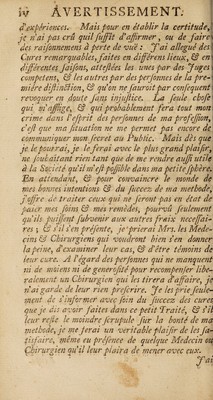 iv AVERTISSEMENT:
d'expériences. Mais pour en établir la certitude,
je n'ai pas crû quil suffit d'affirmer, ou de faire
des raisonnemens à perte de vuë: J'ai allegué des
Cures remarquables, faites en différens lieux, & en
différentes saisons, attestées les unes par des Juges
competens, & les autres par des personnes de la pre-
miére distinction, & qu'on ne sauroit par consequent
revoquer en doute sans injustice. La seule chose
qui m'afflige, & qui probablement fera tout mon
crime dans l'esprit des personnes de ma profession,
c'est que ma situation ne me permet pas encore de
communiquer mon secret au Public. Mais dès que
je le pourrai, je le ferai avec le plus grand plaisir,
ne souhaitant rien tant que de me rendre aussi utile
à la Societé qu'il m'est possible dans ma petite sphére.
En attendant, & pour convaincre le monde de
mes bonnes intentions & du succez de ma methode,
j'offre de traiter ceux qui ne seront pas en état de
païer mes soins & mes remédes, pourvû seulement
qu'ils puissent subvenir aux autres fraix necessai-
res; & s'il s'en présente, je prierai Mrs. les Mede-
cins & Chirurgiens qui voudront bien s'en donner
la peine, d'examiner leur cas, & d'être témoins de
leur cure. A l'égard des personnes qui ne manquent
ni de moïens ni de generosité pour recompenser libe-
ralement un Chirurgien qui les tirera d'affaire, je
n'ai garde de leur rien prescrire. Je les prie seule-
ment de s'informer avec soin du succez des cures
que je dis avoir faites dans ce petit Traité, & s'il
leur reste le moindre scrupule sur la bonté de ma
methode, je me ferai un veritable plaisir de les sa-
tisfaire, même en présence de quelque Medecin ou
Chirurgien qu'il leur plaira de mener avec eux.
J'ai